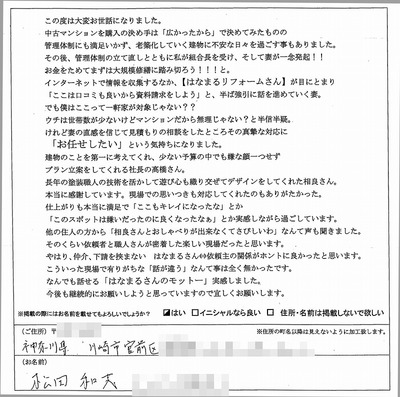 この度は大変お世話になりました。
中古マンションを購入の決め手は「広かったから」で決めてみたものの
管理体制にも満足いかず、老築化していく建物に不安な日々を過ごす事もありました。
その後、管理体制の立て直しとともに私が組合長を受け、そして妻が一念発起!!
お金をためてまずは大規模修繕に踏み切ろう!!!と。
インターネットで情報を収集するなか、【はなまるリフォームさん】が目にとまり
「ここは口コミも良いから資料請求をしよう」と、半ば強引に話を進めていく妻。
でも僕はここって一軒家が対象じゃない??
ウチは世帯数が少ないけどマンションだから無理じゃない?と半信半疑。
けれど妻の直感を信じて見積もりの相談をしたところその真摯な対応に
「お任せしたい」という気持ちになりました。
建物のことを第一に考えてくれ、少ない予算の中でも嫌な顔一つせず
プラン立案をしてくれる社長の高橋さん。
長年の塗装職人の技術を活かして遊び心も織り交ぜてデザインをしてくれた相良さん。
本当に感謝しています。現場での思いつきも対応してくれたのもありがたかった。
仕上がりも本当に満足で「ここもキレイになったな」とか
「このスポットは嫌いだったのに良くなったなぁ」とか実感しながら過ごしています。
他の住人の方から「相良さんとおしゃべりが出来なくてさびしいわ」なんて声も聞きました。
そのくらい依頼者と職人さんが密着した楽しい現場だったと思います。
やはり、仲介、下請を挟まない はなまるさん⇔依頼主の関係がホントに良かったと思います。
こういった現場で有りがちな「話が違う」なんて事は全く無かったです。
なんでも話せる「はなまるさんのモットー」実感しました。
今後も継続的にお願いしようと思っていますので宜しくお願いします。
※掲載の際にはお名前を載せてもよろしいでしょうか? ☑はい □イニシャルなら良い □ 住所・名前は掲載しないで欲しい
(ご住所) 〒 ※住所の町名以降は見えないように加工致します。
神奈川県 川崎市宮前区
(お名前)
松田 和